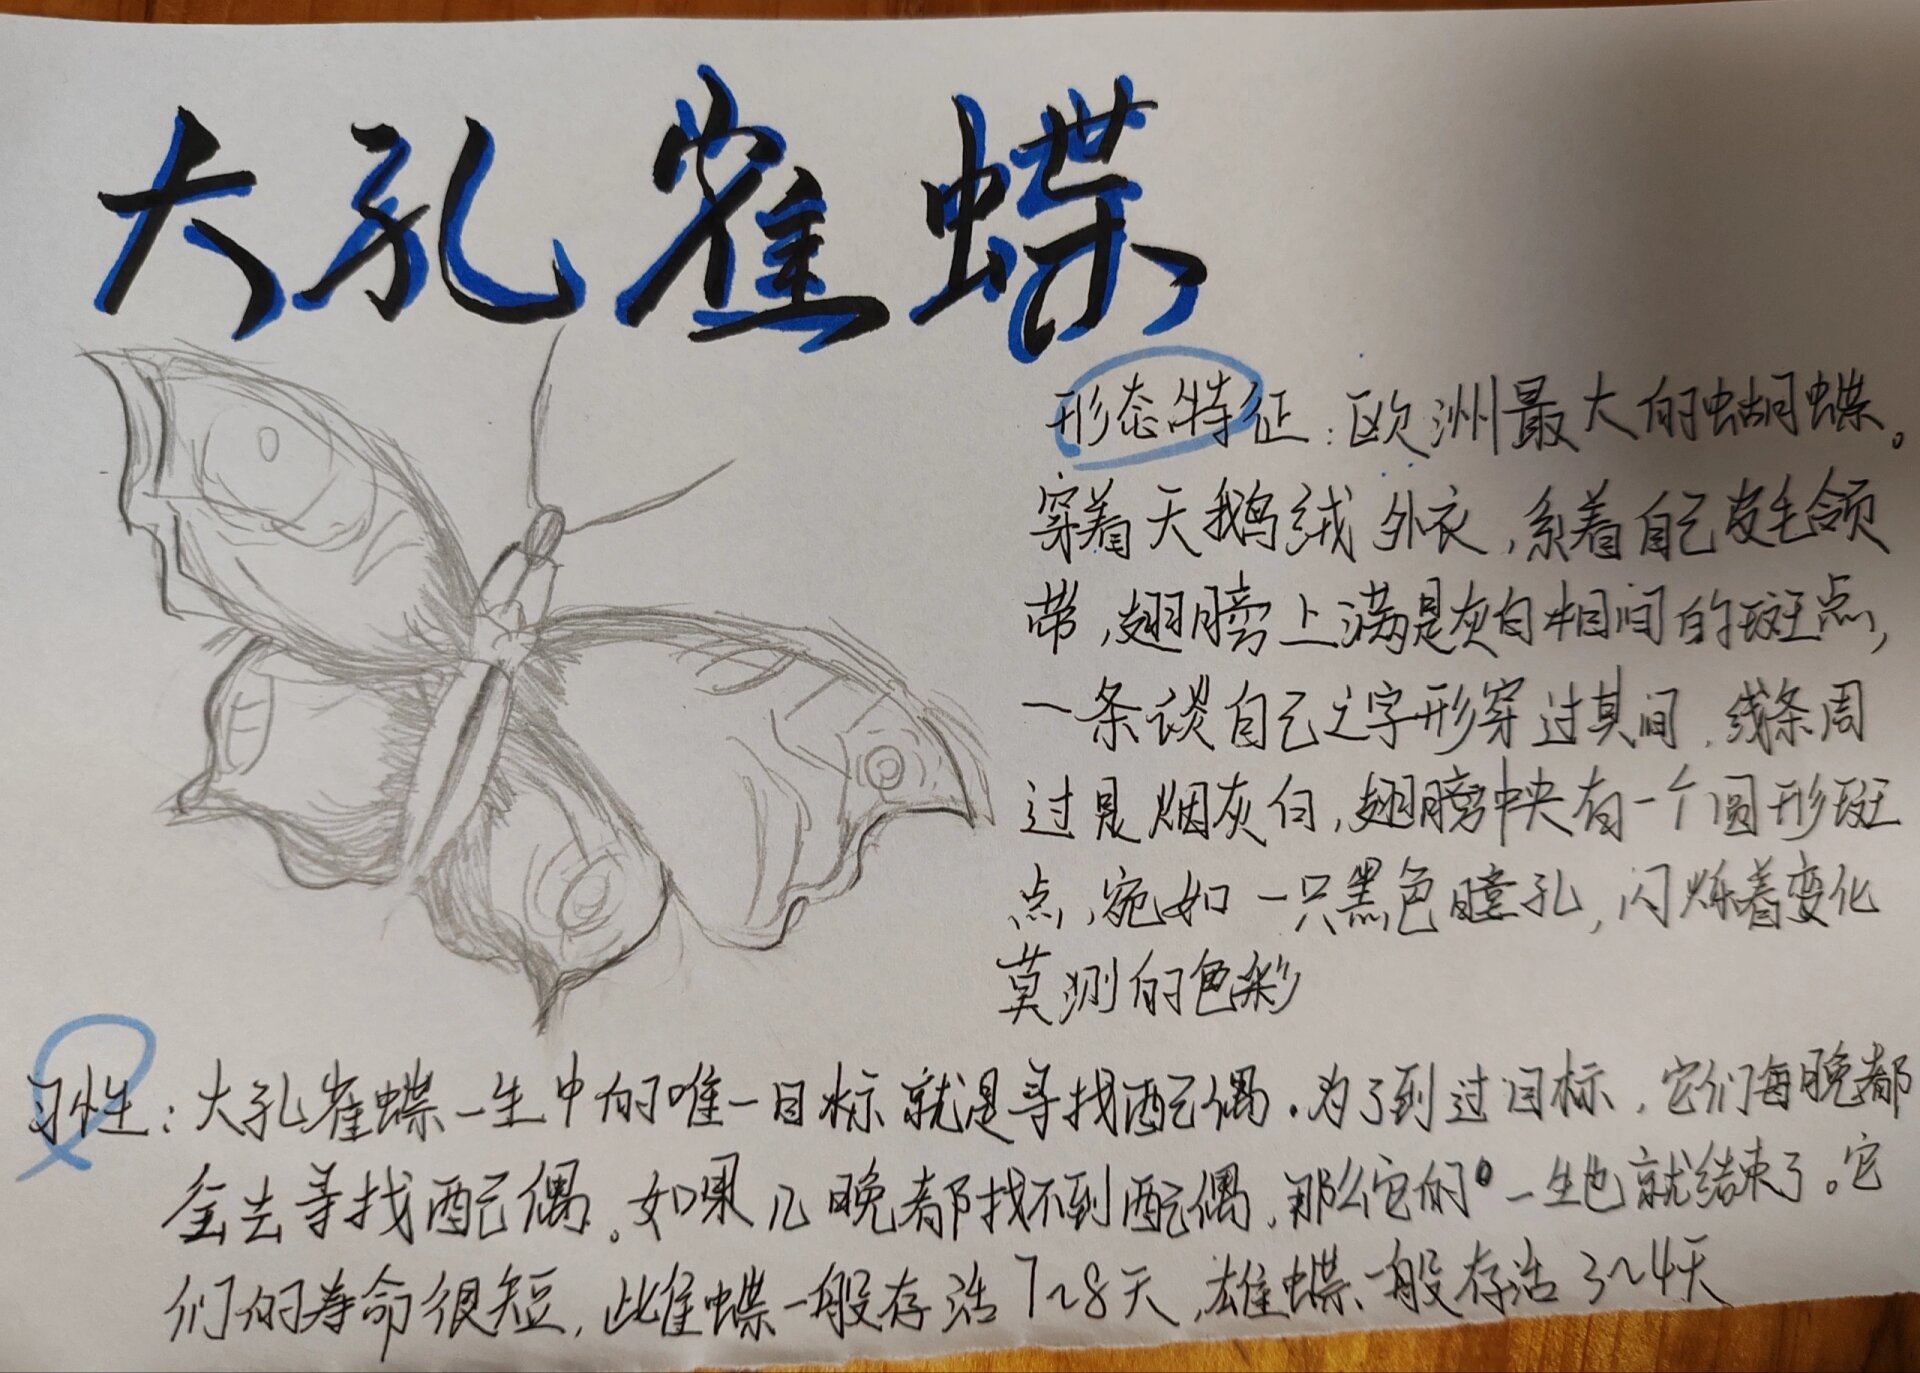 大孔雀蝶
形态特征：欧洲最大的蝴蝶。
穿着天鹅绒外衣，系着自己皮毛领
带，翅膀上满是灰白相间的斑点，
一条谈自己之字形穿过其间，线条周
过是烟灰白，翅膀中央有一个圆形斑
点，宛如一只黑色瞳孔，闪烁着变化
莫测的色彩
习性：大孔雀蝶一生中的唯一目标就是寻找配偶。为了到过目标，它们每晚都
去寻找配偶。如果几晚都找不到配偶，那么它的一生也就结束了。它
们的寿命很短，雌蝶一般存活7~8天，雄蝶一般存活3~4天